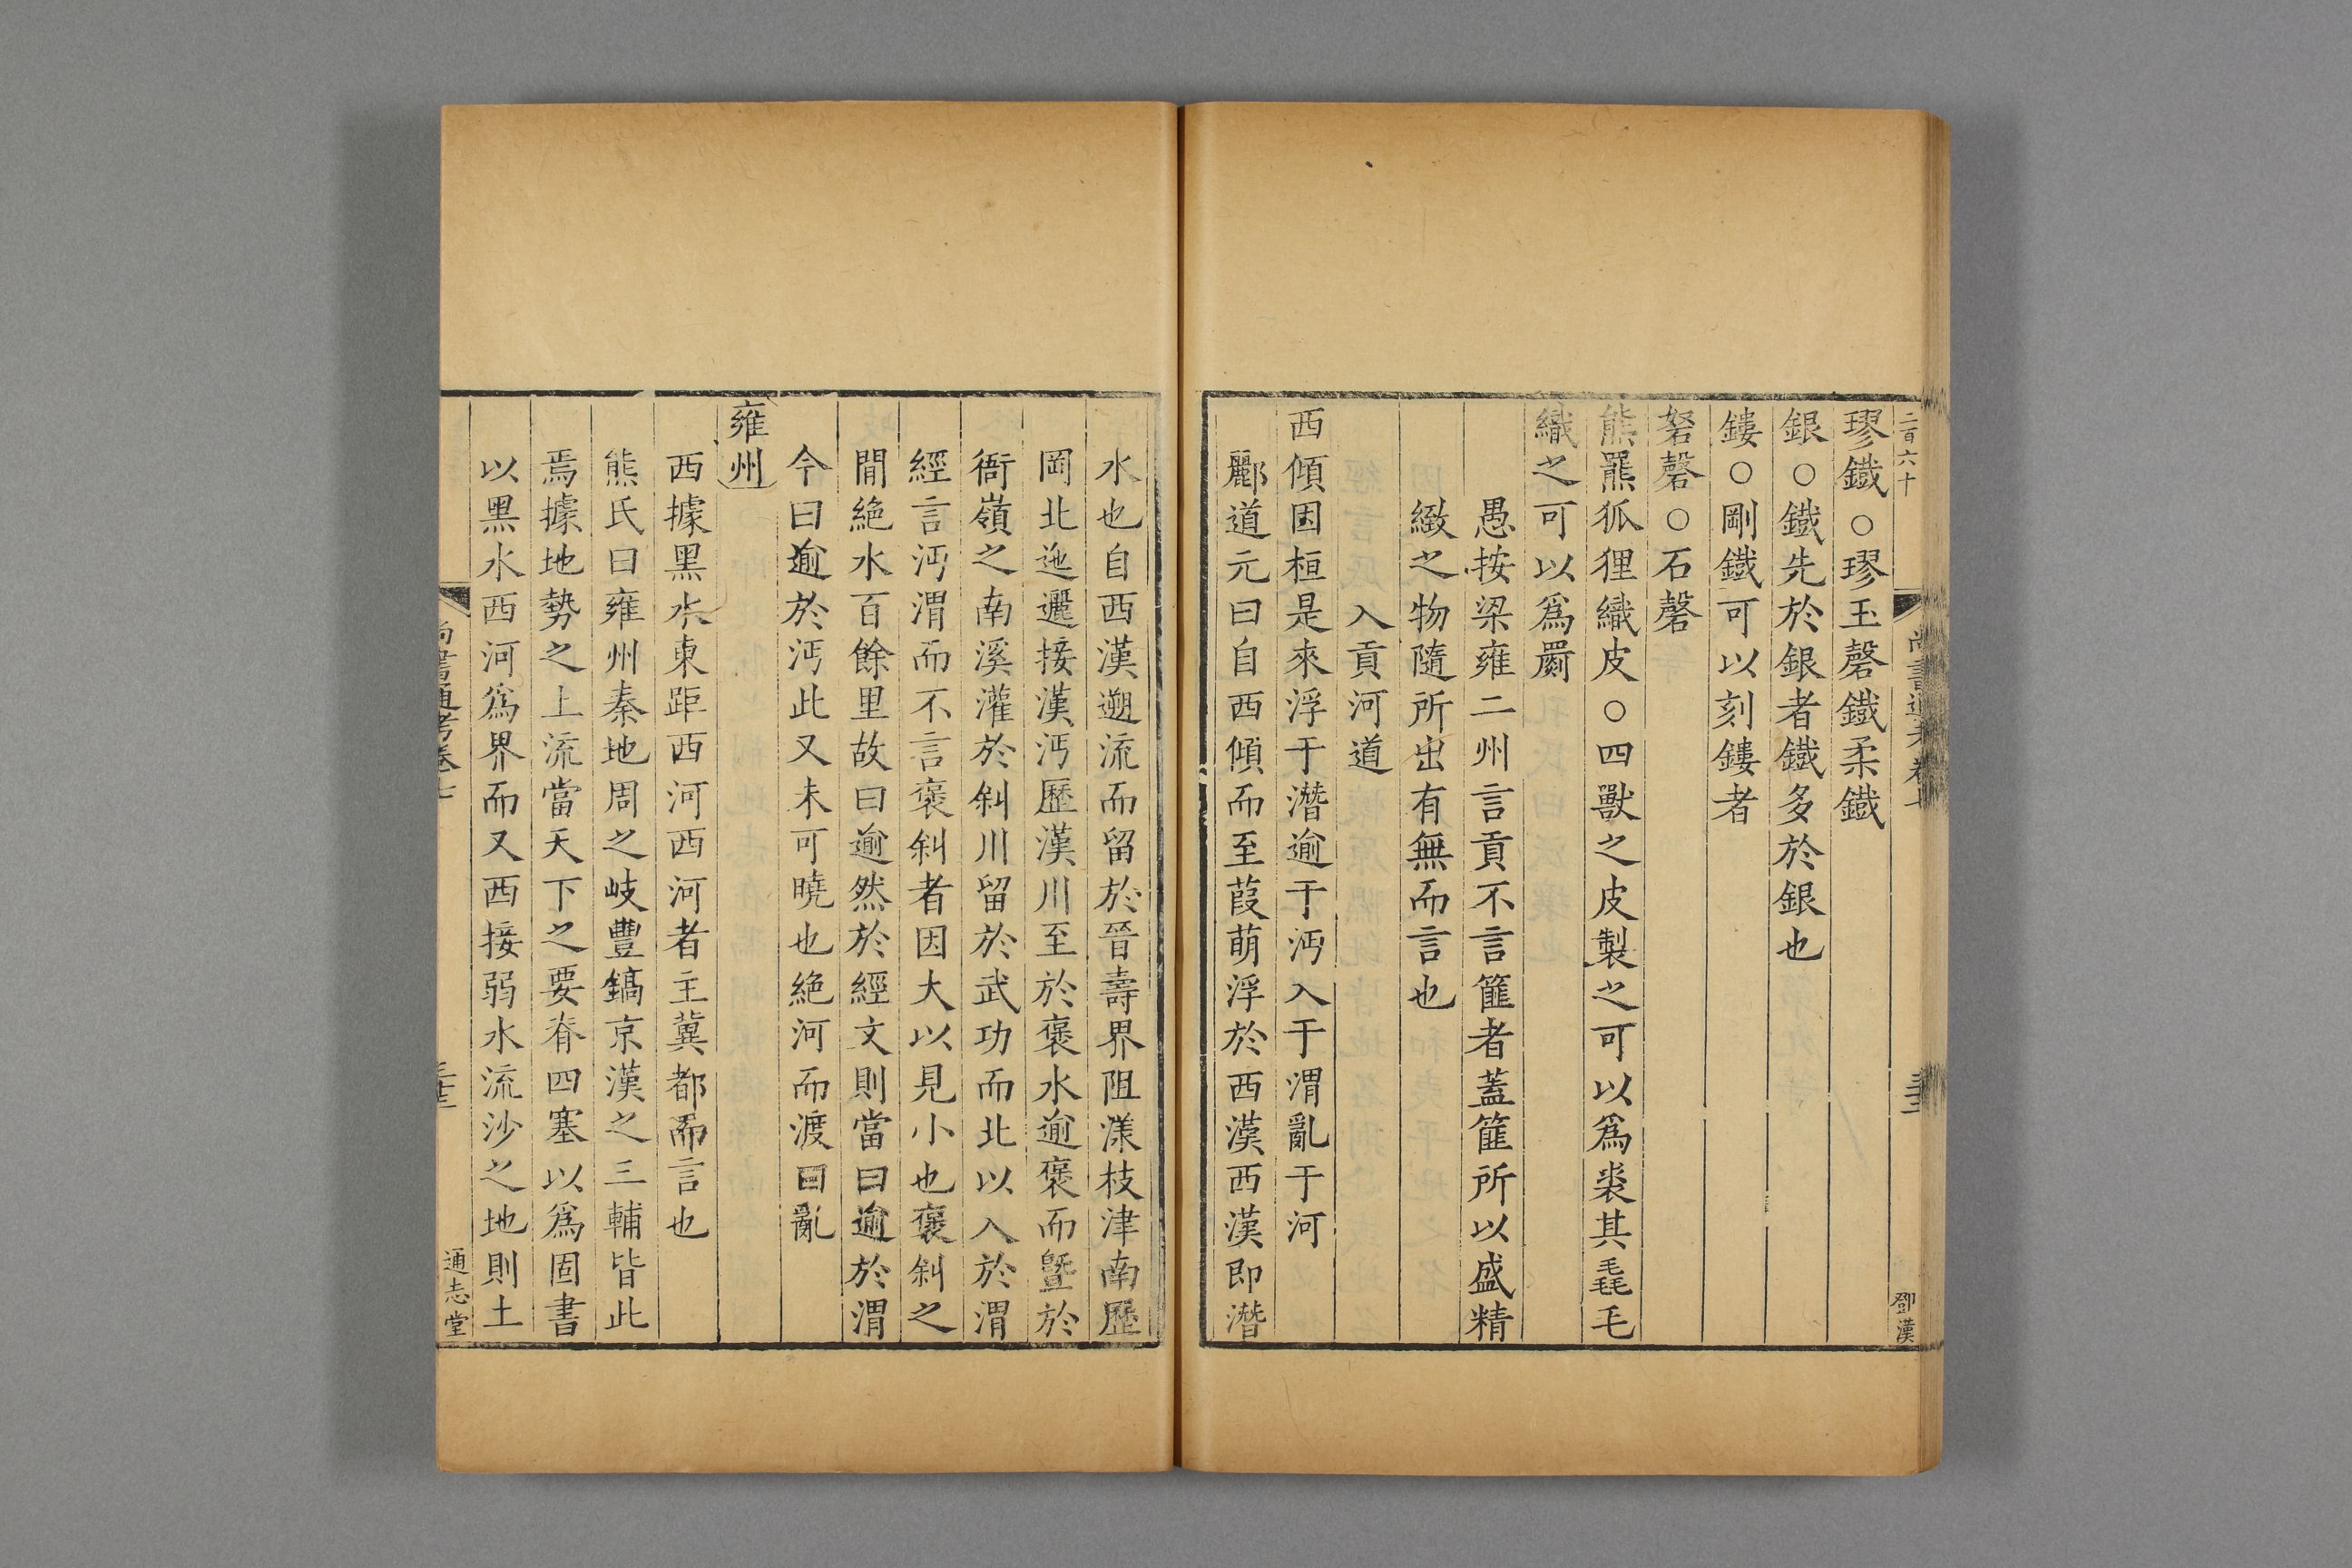 二百六十
尚書通考卷七
鄧漢
璆鐵○璆玉磬鐵柔鐵
銀○鐵先於銀者鐵多於銀也
鏤○剛鐵可以刻鏤者
砮磬○石磬
熊羆狐狸織皮○四獸之皮製之可以爲裘其毳毛
織之可以爲罽
愚按梁雍二州言貢不言篚者蓋篚所以盛精
緻之物隨所出有無而言也
入貢河道
西傾因桓是來浮于潛逾于沔入于渭亂于河
酈道元曰自西傾而至葭萌浮於西漢西漢即潛
水也自西漢遡流而留於晉壽界阻漾枝津南歷
岡北迤邐接漢沔歷漢川至於褒水逾褒而曁於
衙嶺之南溪灌於斜川留於武功而北以入於渭
經言沔渭而不言褒斜者因大以見小也褒斜之
閒絶水百餘里故曰逾然於經文則當曰逾於渭
今曰逾於沔此又未可曉也絶河而渡曰亂
雍州
西據黑水東距西河西河者主冀都而言也
熊氏曰雍州秦地周之岐豐鎬京漢之三輔皆此
焉據地勢之上流當天下之要脊四塞以爲固書
以黑水西河爲界而又西接弱水流沙之地則土
尚書通考卷七
通志堂